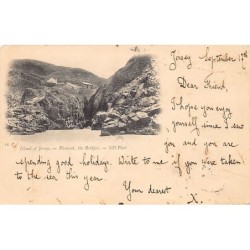 Jersey September 17th
Dear Friend,
I hope you enjoy
yourself since I saw
you and you are
Island of Jersey. — Plemont, the Bridges. — ND Phot
spending good holidays. Write to me if you were taken
to the sea this year
Your dearest
X.